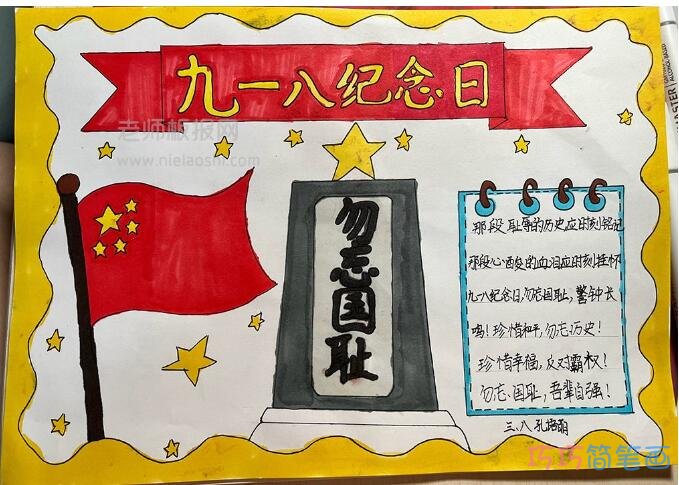 九一八纪念日
老师板报网
www.nielaoshi.com
勿忘国耻
那段耻辱的历史应时刻铭记
那段心酸的血泪应时刻挂怀
九一八纪念日,勿忘国耻,警钟长
鸣!珍惜和平,勿忘历史!
珍惜幸福,反对霸权!
勿忘、国耻,吾辈自强!
三、八 孔
巧巧简笔画
MASTER